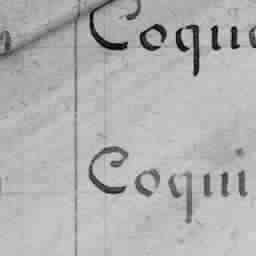 Coque
Coqui